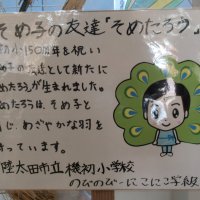 そめ子の友達「そめたろう」
初小150周年を祝い
め子の友達として新たに
めたろうが生まれました。
めたろうは、そめ子と
じ、わざやかな羽を
っています。
陸太田市立機初小学校
のびのび～にこにこ学級